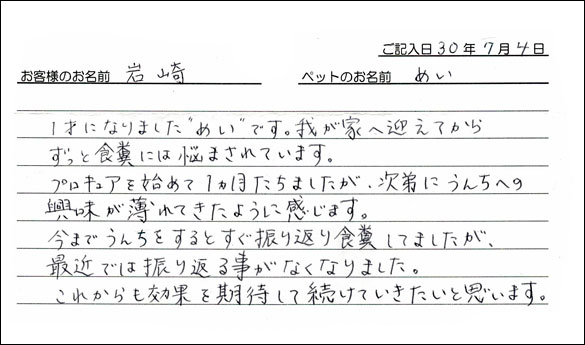 ご記入日 30年7月4日
お客様のお名前 岩崎 ペットのお名前 めい
1才になりました"めい"です。我が家へ迎えてから
ずっと食糞には悩まされています。
プロキュアを始めて1カ月たちましたが、次第にうんちへの
興味が薄れてきたように感じます。
今までうんちをするとすぐ振り返り食糞してましたが、
最近では振り返る事がなくなりました。
これからも効果を期待して続けていきたいと思います。